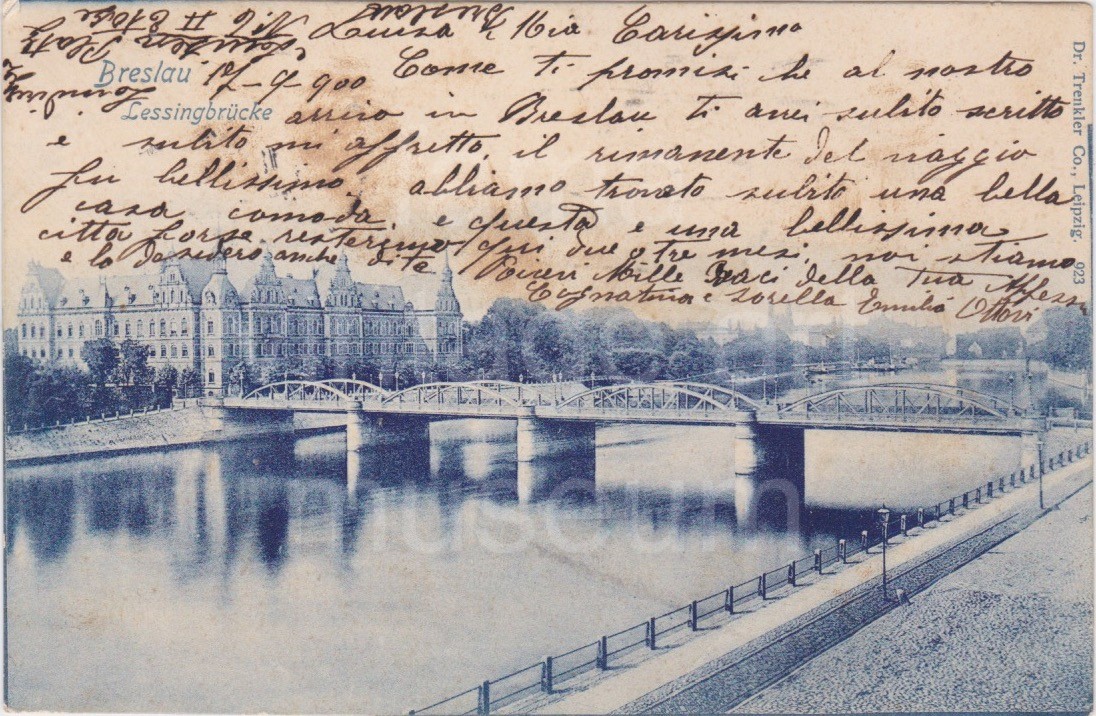 Breslau
Lessingbrücke
17-9-900
Luisa Mia Carissima
Come ti promisi che al nostro
arrivo in Breslau ti avrei subito scritto
e subito mi affretto, il rimanente del viaggio
fu bellissimo. abbiamo trovato subito una bella
casa comoda, e questa e una bellissima
città forse resteremo qui due o tre mesi, noi stiamo
e lo desidero anche di te
Ricevi Mille Baci della Tua Affez
Cognatina e Sorella Emilia Ottovi
Dr. Trenkler Co., Leipzig. 923
museum